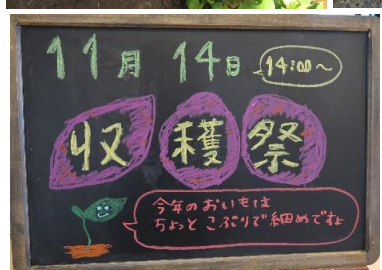 11月 14日 14:00〜
収穫祭
今年のおいもは
ちょっと こぶりで細めですよ